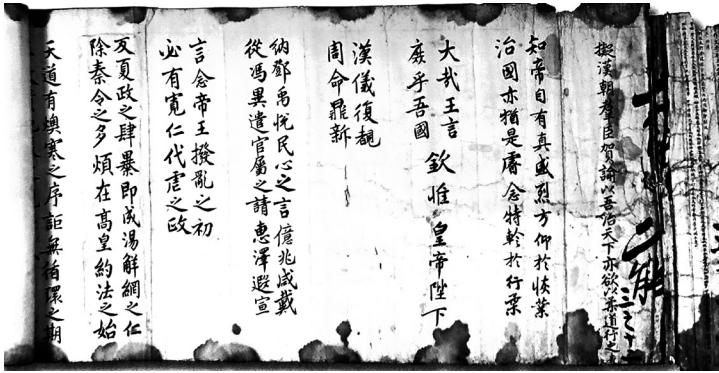 擬漢朝羣臣賀諭以吾治天下亦欲柔道行之
二能
知帝自有真盛烈方仰於恢業
治國亦猶是睿念特軫於行柔
大哉王言
乎吾國
欽惟 皇帝陛下
漢儀復覩
周命新
納鄧禹悅民心之言億兆咸戴
從馮異遣官屬之請惠澤遐宣
言念帝王撥亂之初
必有寬仁代虐之政
反夏政之肆暴即成湯解網之仁
除秦令之多煩在高皇約法之始
天道有燠寒之序詎無循環之期